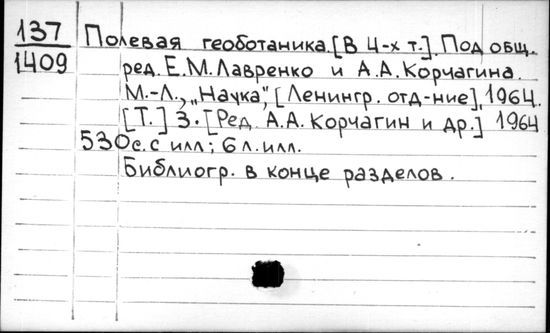 137
1409
Полевая геоботаника. [В 4-х т.]. Под общ.
ред. Е.М. Лавренко и А.А. Корчагина.
М.-Л., „Наука", [Ленингр. отд-ние], 1964.
[Т.] 3. [Ред. А.А. Корчагин и др.] 1964
530с. с илл; 6 л. илл.
Библиогр. в конце разделов.